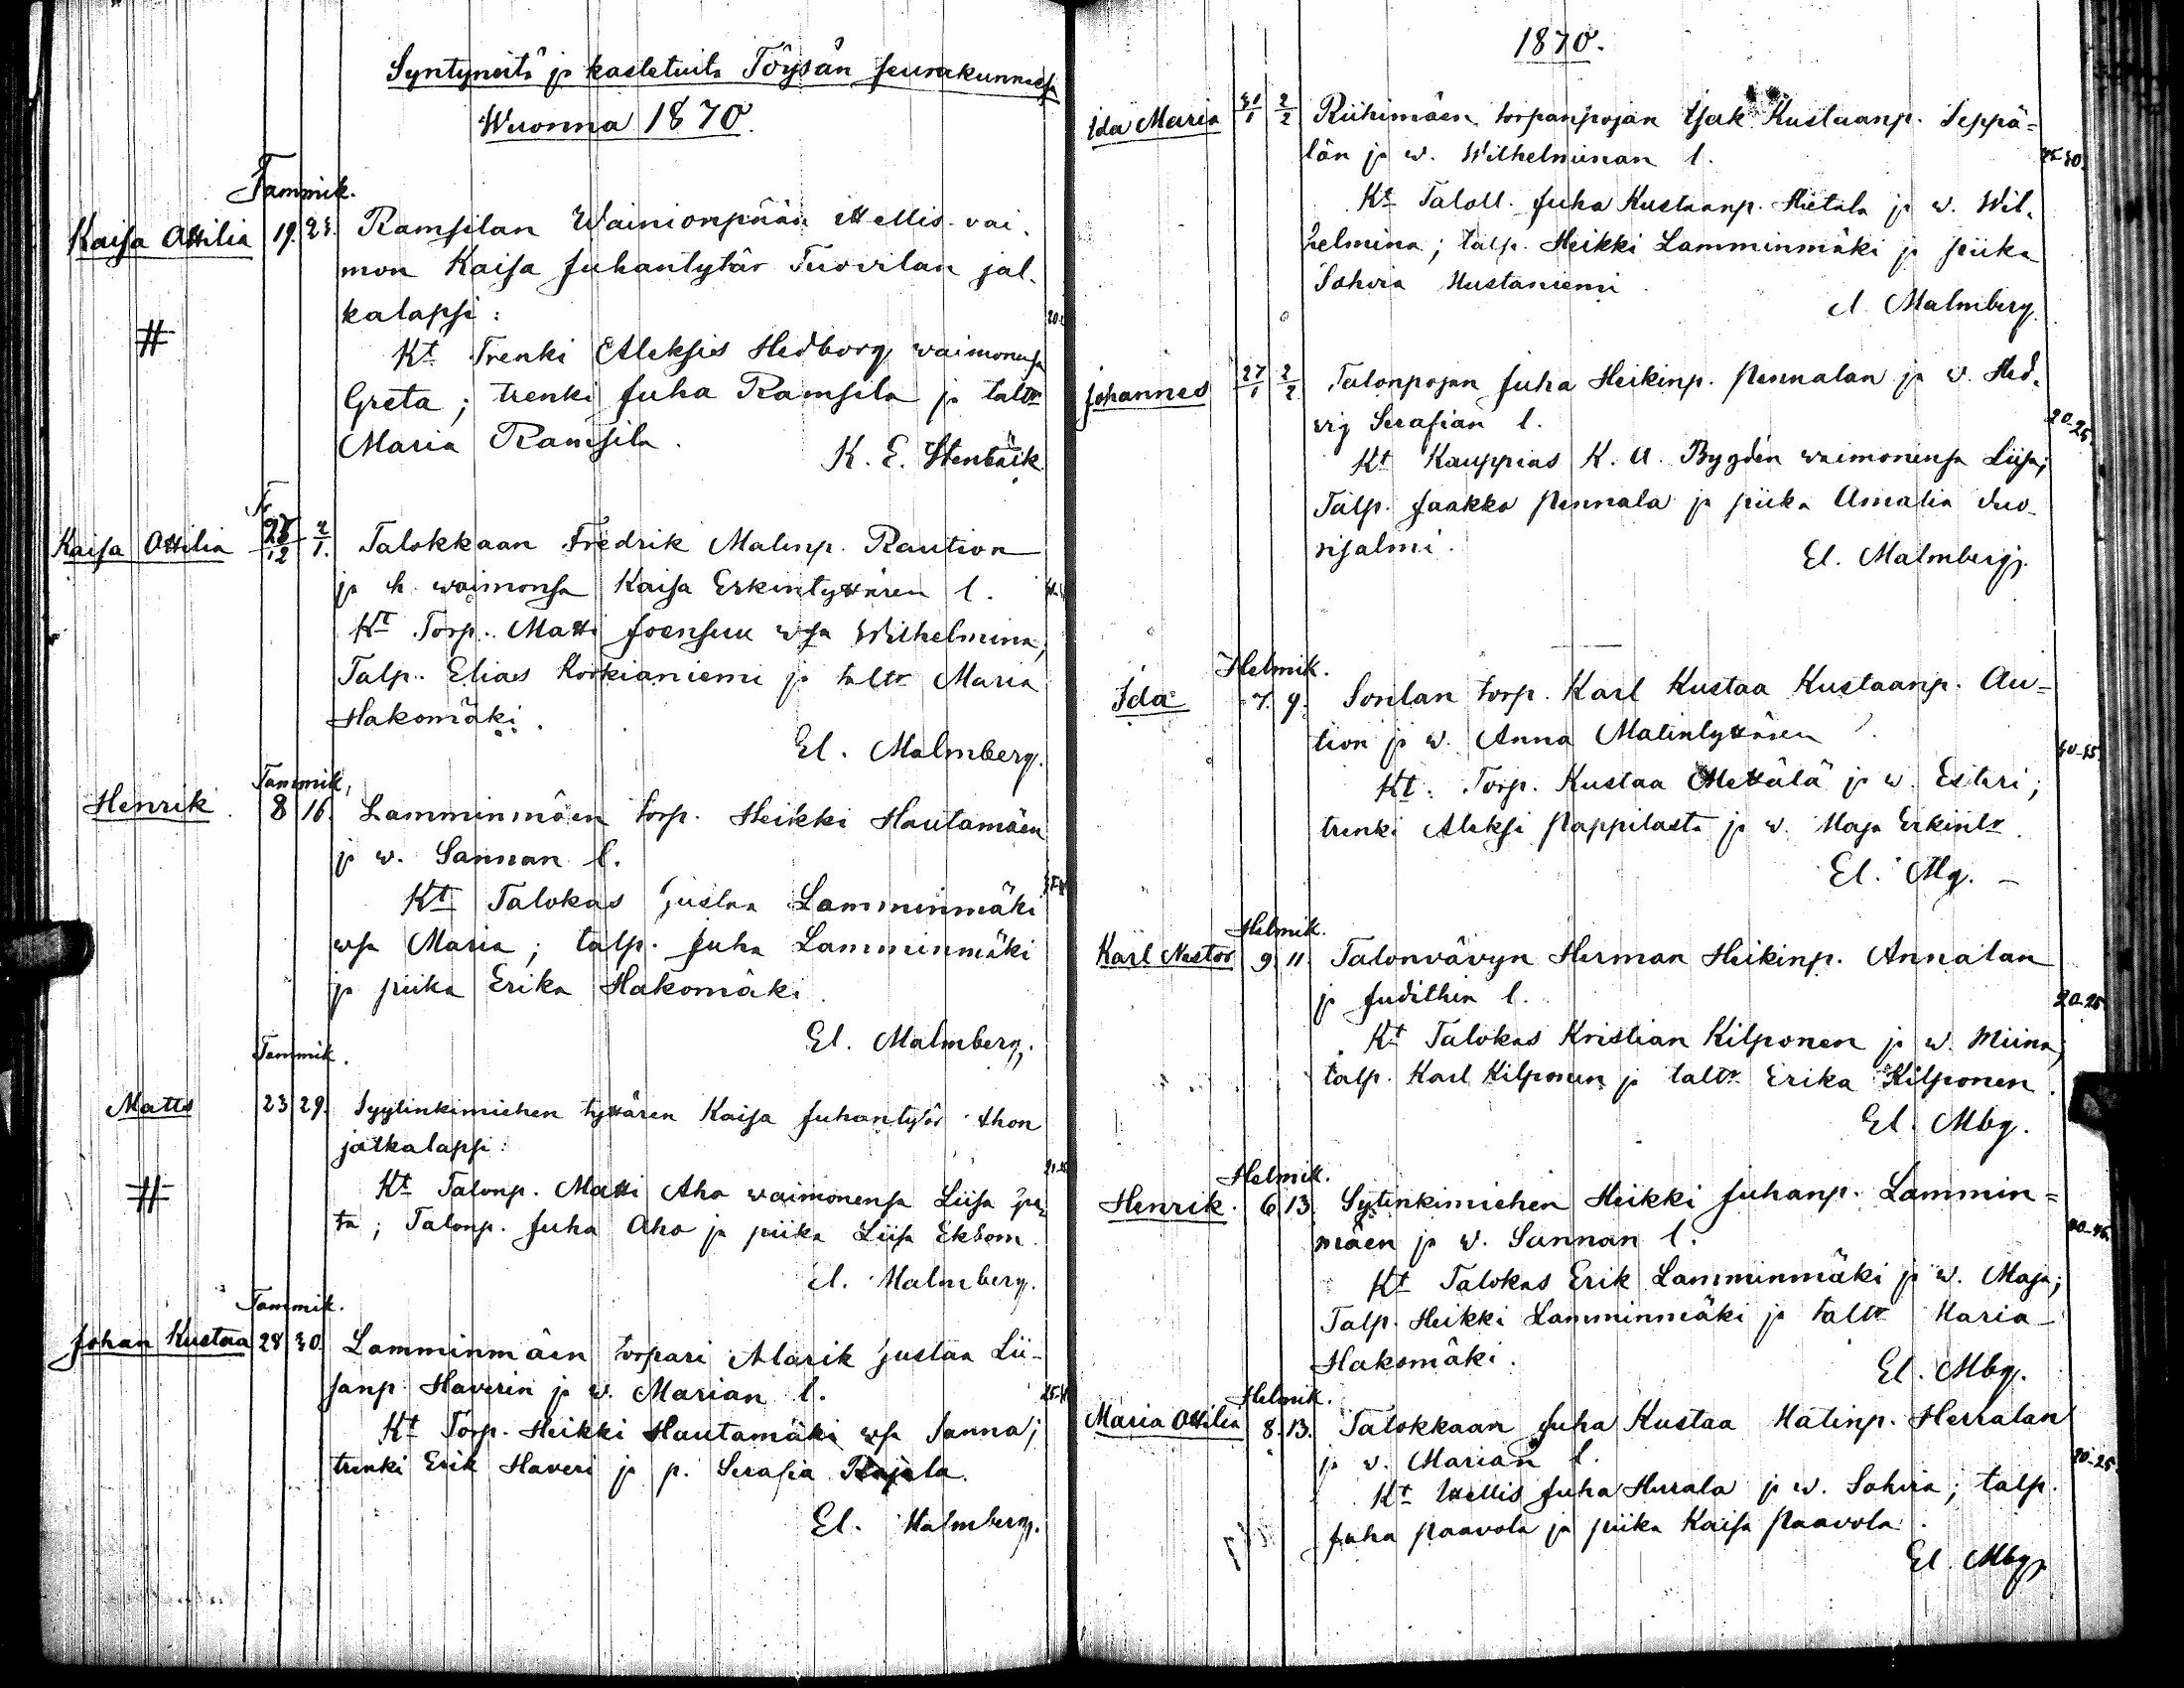 Syntyneitä ja kastetuita Töysän seurakunnassa
Wuonna 1870.
Tammik.
Kaisa Ottilia 19. 23. Ramsilan Wainionpään ittellis. vai-
mon Kaisa Juhantytär Tuovilan jal-
kalapsi:
#
Kt Trenki Aleksis Hedborg waimonensa
Greta; trenki Juha Ramsila ja taltr
Maria Ramsila.
K. E. Stenbäik
Kaisa Ottilia 28/12 2/1. Talokkaan Fredrik Matinp. Raution
ja h. waimonsa Kaisa Erkintyttären l.
Kt Torp. Matti Joensuu wsa Wilhelmina,
Talp. Elias Korkianiemi ja taltr Maria
Hakomäki.
El. Malmberg.
Tammik.
Henrik. 8 16. Lamminmäen torp. Heikki Hautamäen
ja w. Sannan l.
Kt Talokas Gustaa Lamminmäki
wsa Maria; talp. Juha Lamminmäki
ja piika Erika Hakomäki.
El. Malmberg.
Tammik.
Matts 23 29. Syytinkimiehen tyttären Kaisa Juhantytär Ahon
jalkalapsi:
#
Kt Talonp. Matti Aho waimonensa Liisa
ta; Talonp. Juha Aho ja piika Liisa Ekbom.
El. Malmberg.
Tammik.
Johan Kustaa 28 30. Lamminmäen torpari Alarik Gustaa Lii-
sanp. Haverin ja w. Marian l.
Kt Torp. Heikki Hautamäki wsa Sanna;
trenki Erik Haveri ja p. Serafia Rajala.
El. Malmberg.
1870.
Ida Maria 31/1 2/2 Riihimäen torpanpojan Isak Kustaanp. Seppä=
län ja w. Wilhelmiinan l.
Kt Taloll. Juha Kustaanp. Hietala ja w. Wil-
helmina; talp. Heikki Lamminmäki ja piika
Sohvia Mustaniemi.
El. Malmberg.
Johannes 27/1 2/2 Talonpojan Juha Heikinp. Pennalan ja w. Hed-
vig Serafian l.
20-25.
Kt Kauppias K. A. Bygdén waimonensa Liisa;
Talp. Jaakko Pennala ja piika Amalia Suo-
nisalmi.
El. Malmberg.
Helmik.
Ida 7. 9. Sonlan torp. Karl Kustaa Kustaanp. Au=
tion ja w. Anna Matintyttären
Kt. Torp. Kustaa Mettälä ja w. Esteri;
trenki Aleksi Pappilasta ja w. Maja Erkintr.
El. Mg. -
Helmik.
Karl Nestor 9. 11. Talonvävyn Herman Heikinp. Annalan
ja Judithin l.
20-25.
Kt Talokas Kristian Kilponen ja w. Miina;
talp. Karl Kilponen ja taltr Erika Kilponen.
El. Mbg.
Helmik.
Henrik. 6. 13. Sytinkimiehen Heikki Juhanp. Lammin=
mäen ja w. Sannan l.
Kt Talokas Erik Lamminmäki ja w. Maja;
Talp. Heikki Lamminmäki ja taltr Maria
Hakomäki.
El. Mbg.
Helmik.
Maria Ottilia 8. 13. Talokkaan Juha Kustaa Matinp. Herralan
ja w. Marian l.
20-25.
Kt Ittellis Juha Herrala ja w. Sohvia; talp.
Juha Paavola ja piika Kaisa Paavola.
El. Mbg.